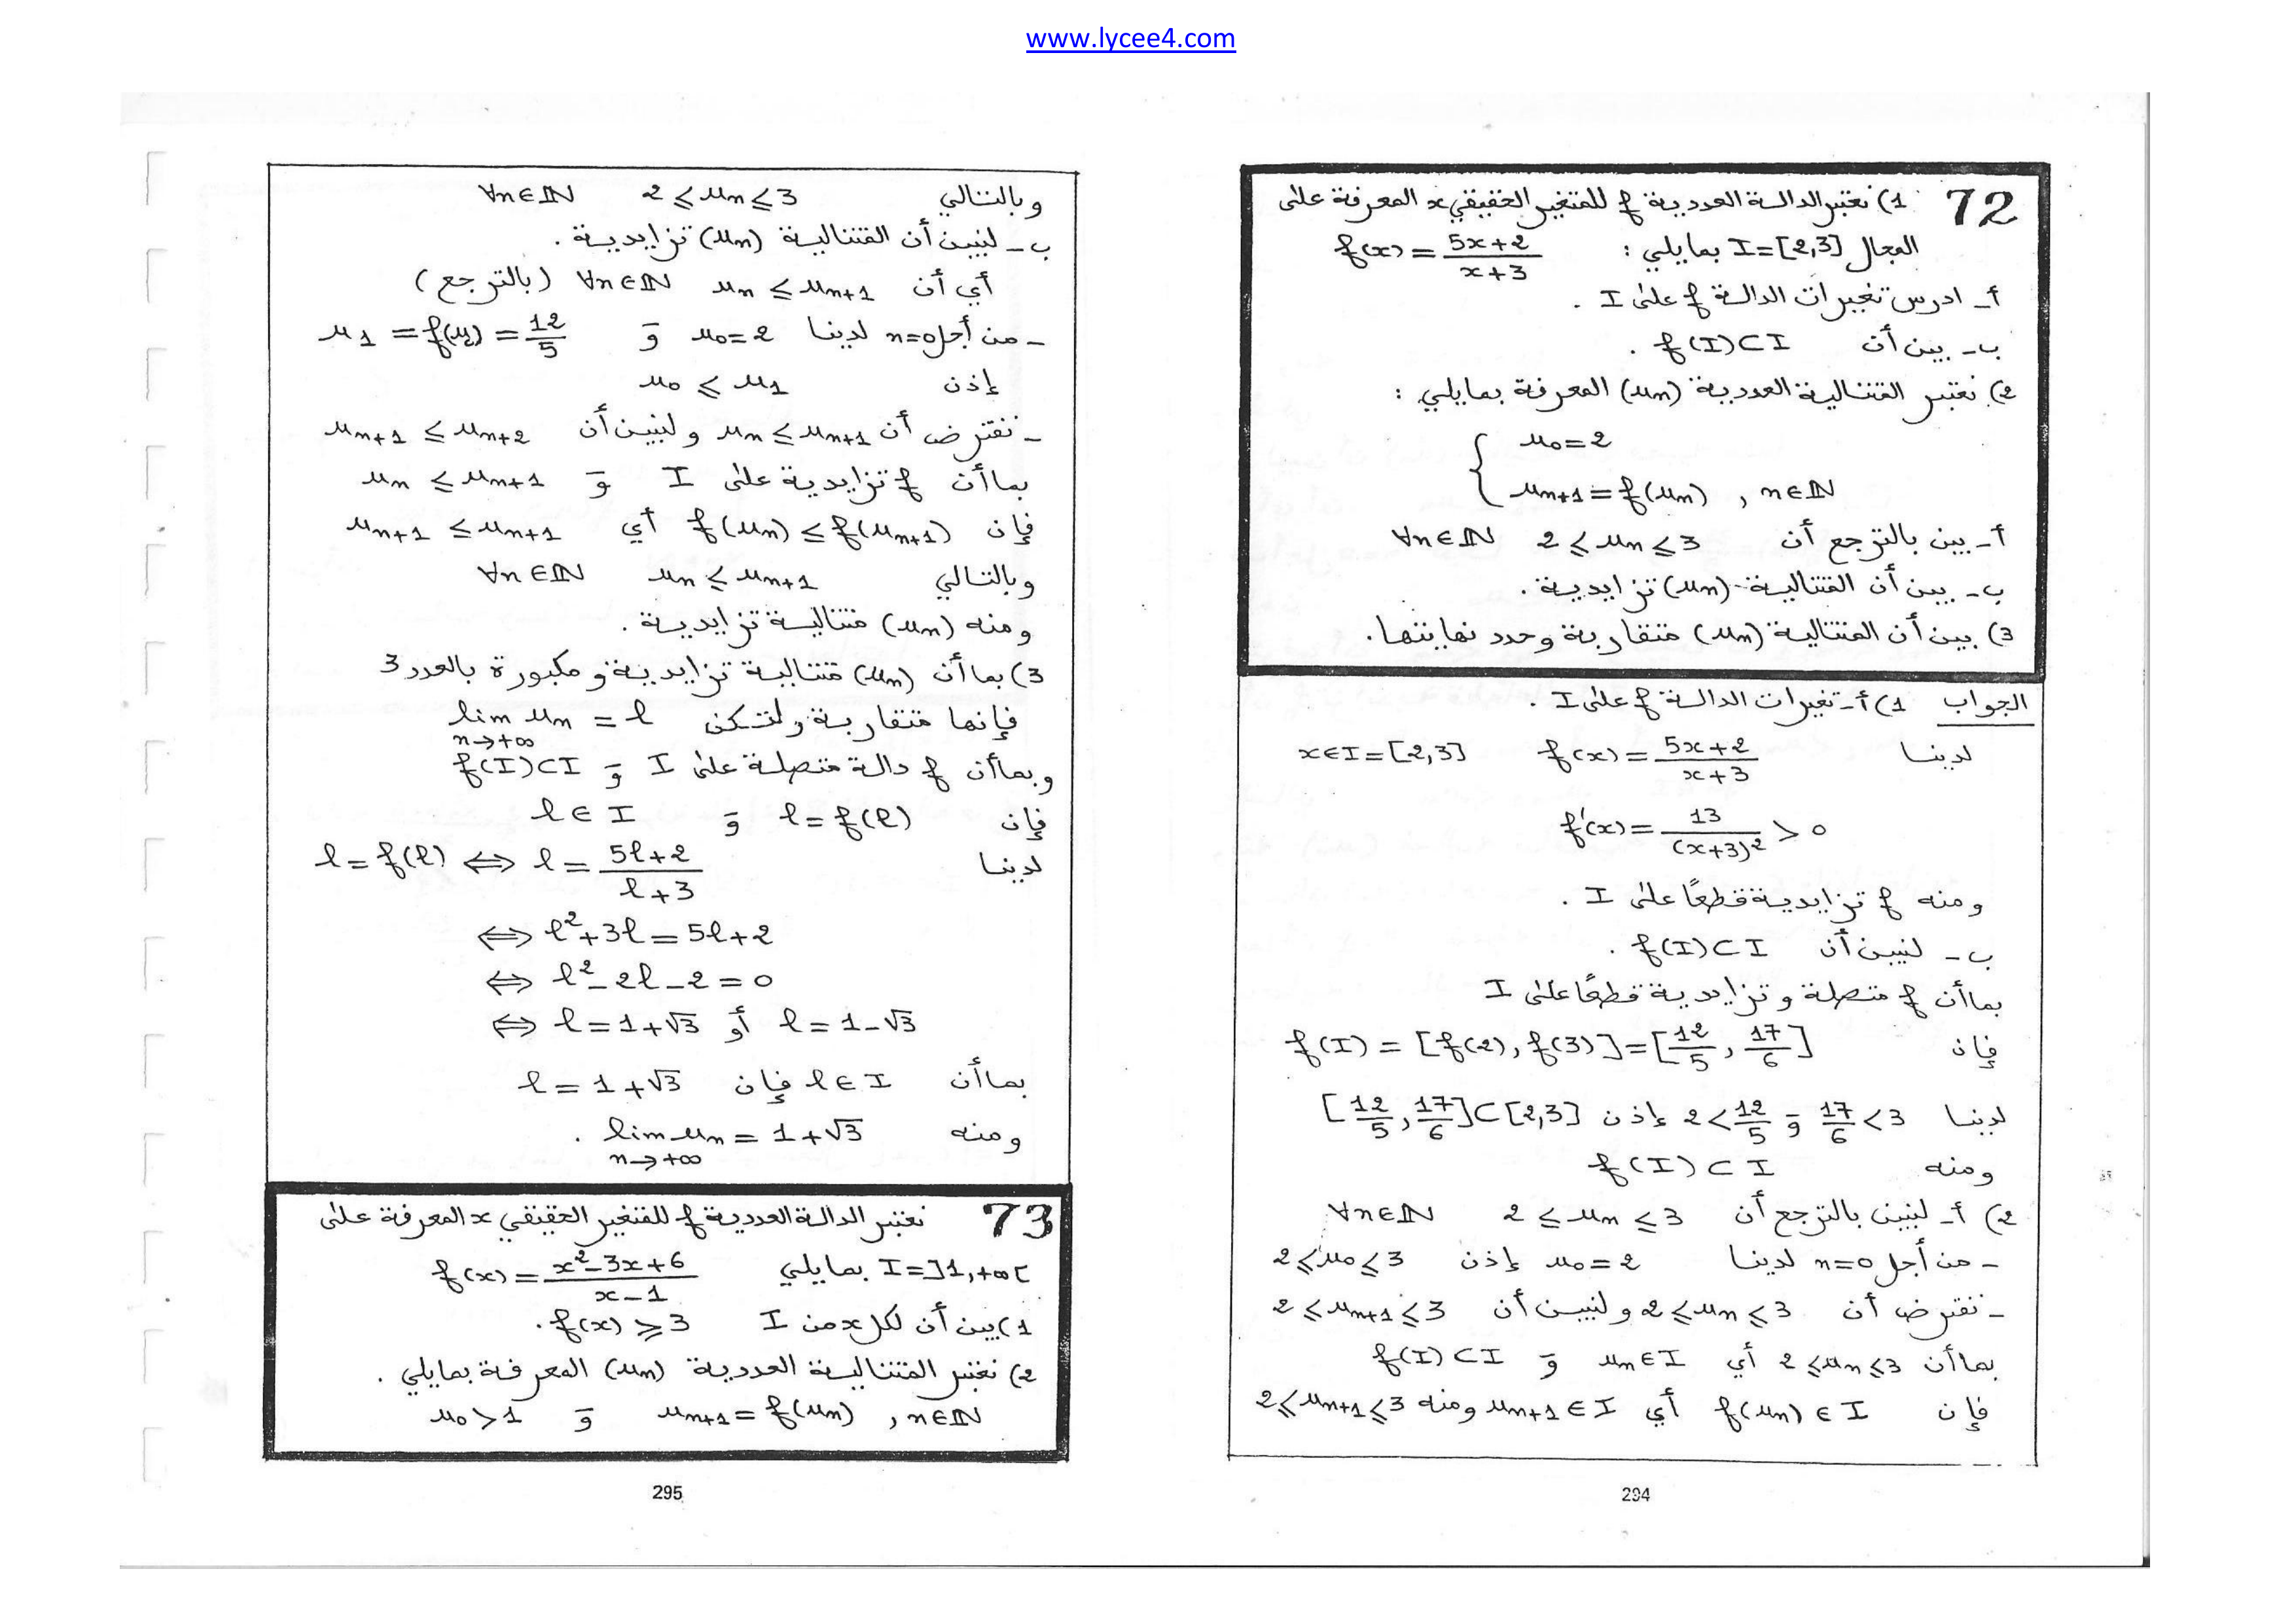 www.lycee4.com
72 1) نعتبر الدالة العددية f للمتغير الحقيقي x المعرفة على
المجال I=[2,3] بمايلي : f(x) = (5x+2)/(x+3)
أ- ادرس تغيرات الدالة f على I .
ب- بين أن f(I)⊂I .
2) نعتبر المتتالية العددية (un) المعرفة بمايلي :
{ u0=2
un+1 = f(un) , n∈ℕ
أ- بين بالترجع أن 2 ⩽ un ⩽ 3 ∀n∈ℕ
ب- بين أن المتتالية (un) تزايدية .
3) بين أن المتتالية (un) متقاربة وحدد نهايتها .
الجواب 1) أ- تغيرات الدالة f على I .
لدينا f(x) = (5x+2)/(x+3) x∈I=[2,3]
f'(x) = 13/(x+3)² > 0
ومنه f تزايدية قطعًا على I .
ب- لنبين أن f(I)⊂I .
بما أن f متصلة و تزايدية قطعًا على I
فإن f(I) = [f(2), f(3)] = [12/5 , 17/6]
لدينا 17/6 < 3 و 2 < 12/5 إذن [12/5 , 17/6]⊂[2,3]
ومنه f(I)⊂I
2) أ- لنبين بالترجع أن 2 ⩽ un ⩽ 3 ∀n∈ℕ
- من أجل n=0 لدينا u0=2 إذن 2⩽u0⩽3
- نفترض أن 2⩽un⩽3 و لنبين أن 2⩽un+1⩽3
بما أن 2⩽un⩽3 أي un∈I و f(I)⊂I
فإن f(un)∈I أي un+1∈I ومنه 2⩽un+1⩽3
294
وبالتالي 2 ⩽ un ⩽ 3 ∀n∈ℕ
ب- لنبين أن المتتالية (un) تزايدية .
أي أن un ⩽ un+1 ∀n∈ℕ (بالترجع)
- من أجل n=0 لدينا u0=2 و u1 = f(u0) = 12/5
إذن u0 ⩽ u1
- نفترض أن un ⩽ un+1 و لنبين أن un+1 ⩽ un+2
بما أن f تزايدية على I و un ⩽ un+1
فإن f(un) ⩽ f(un+1) أي un+1 ⩽ un+1
وبالتالي un ⩽ un+1 ∀n∈ℕ
ومنه (un) متتالية تزايدية .
3) بما أن (un) متتالية تزايدية و مكبورة بالعدد 3
فإنها متقاربة ولتكن lim un = ℓ
n→+∞
وبما أن f دالة متصلة على I و f(I)⊂I
فإن ℓ = f(ℓ) و ℓ∈I
لدينا ℓ = f(ℓ) ⟺ ℓ = (5ℓ+2)/(ℓ+3)
⟺ ℓ²+3ℓ = 5ℓ+2
⟺ ℓ²-2ℓ-2 = 0
⟺ ℓ = 1+√3 أو ℓ = 1-√3
بما أن ℓ∈I فإن ℓ = 1+√3
ومنه lim un = 1+√3 .
n→+∞
73 نعتبر الدالة العددية f للمتغير الحقيقي x المعرفة على
I=]1,+∞[ بمايلي f(x) = (x²-3x+6)/(x-1)
1) بين أن لكل x من I f(x) ⩾ 3 .
2) نعتبر المتتالية العددية (un) المعرفة بمايلي .
un+1 = f(un) , n∈ℕ و u0 > 1
295